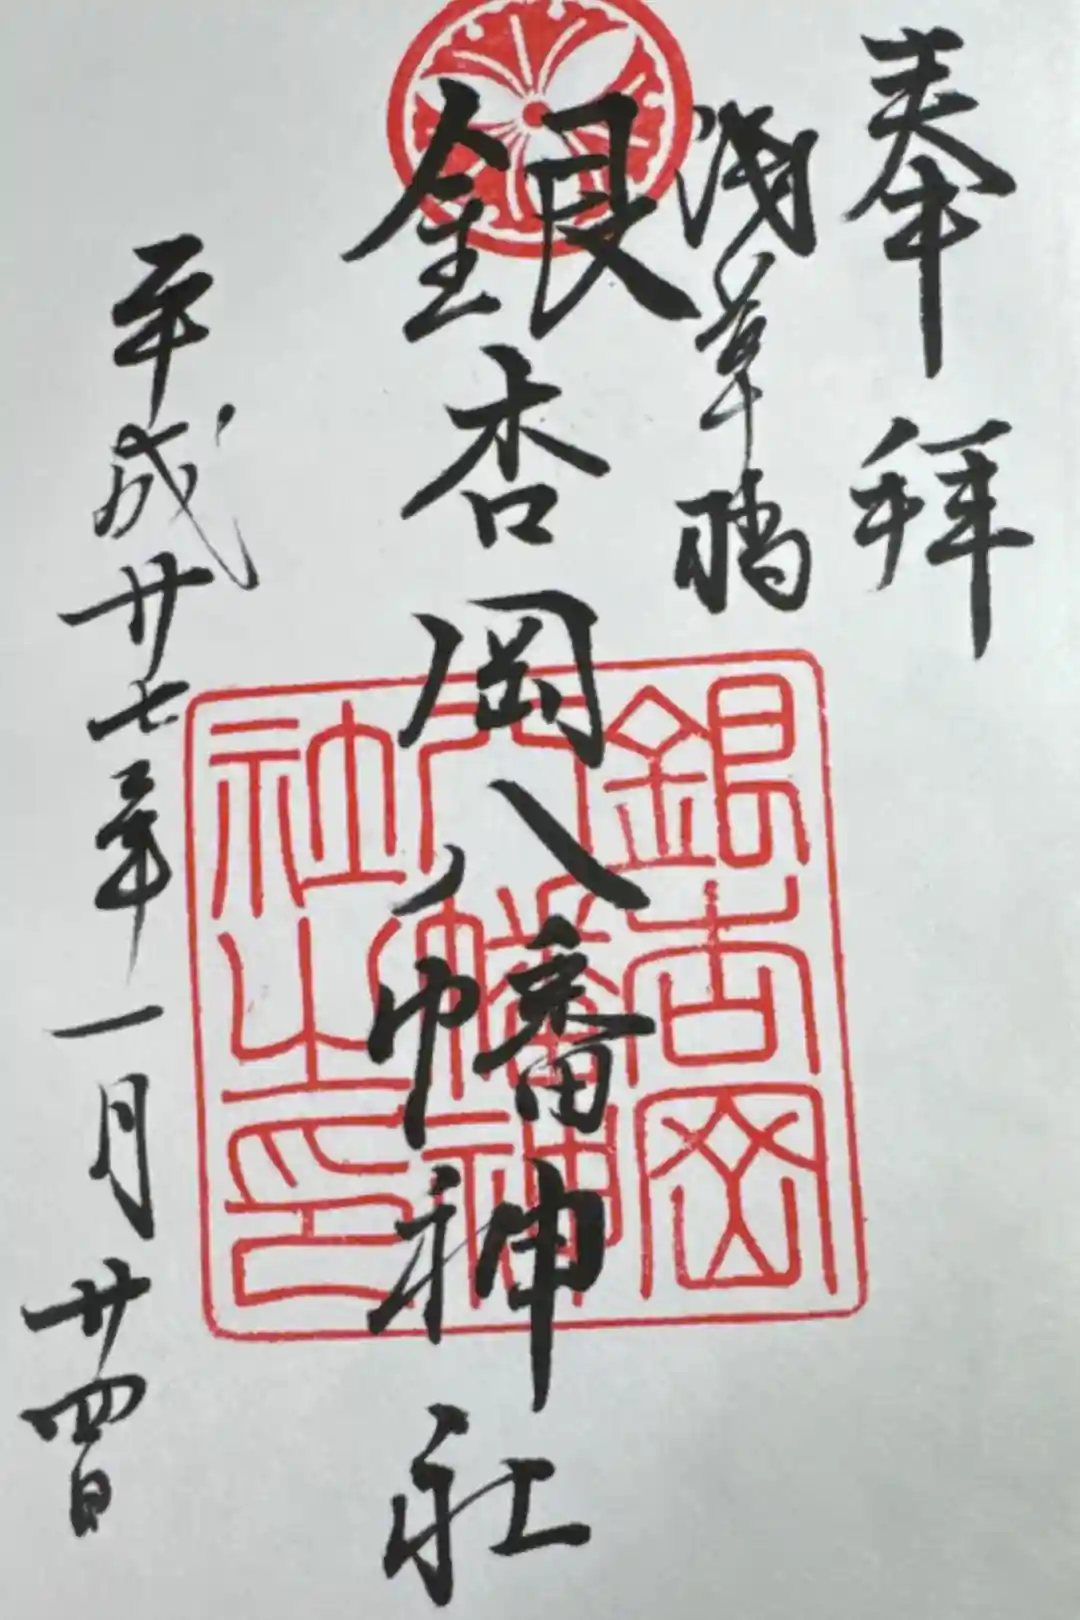 奉拝
浅草橋
銀杏岡八幡神社
銀杏岡
八幡神
社之印
平成廿七年一月廿四日